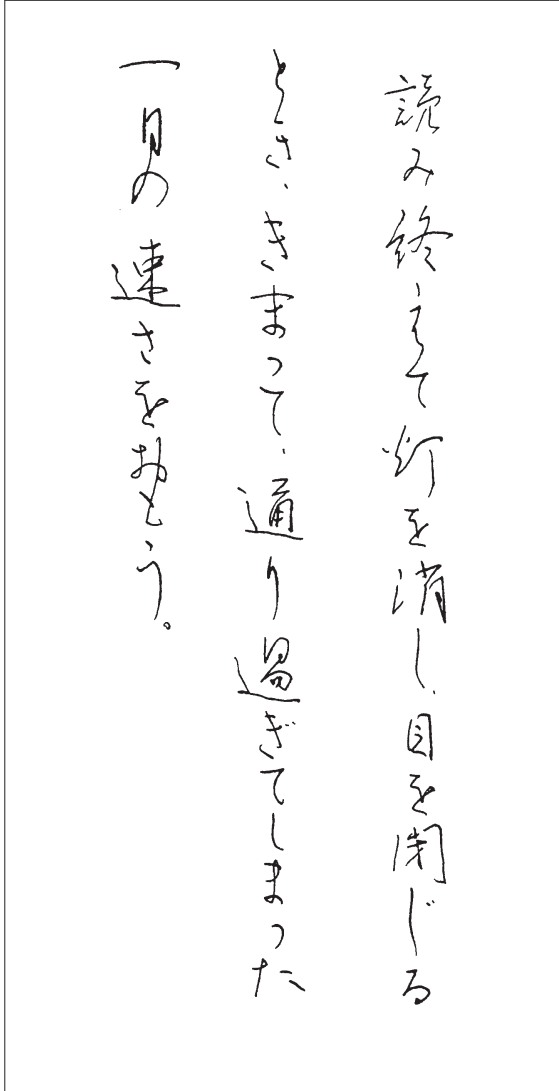 読み終えて灯を消し、目を閉じる
とき、きまって、通り過ぎてしまった
一日の速さをおもう。